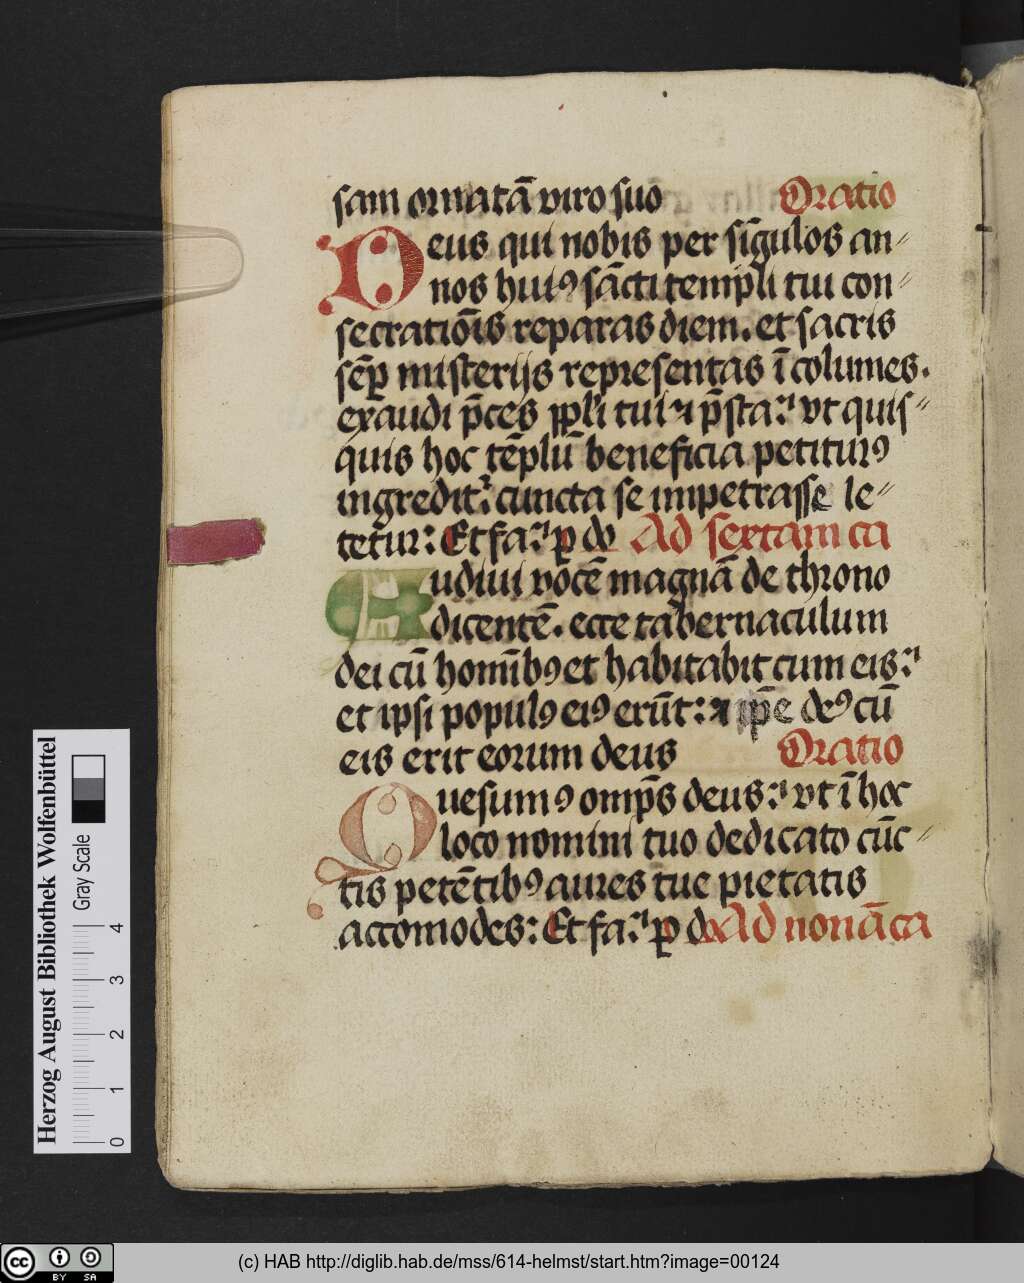 sam ornatā viro suo Oratio
Deus qui nobis per sīgulos an〃
nos huiꝰ sācti templi tui con〃
secratiōis reparas diem. et sacris
sēꝑ misterijs representas īcolumes.
exaudi p̄ces ꝑpl'i tui ⁊ p̄sta: vt quis〃
quis hoc tēplū beneficia petiturꝰ
ingredit᷑ cuncta se impetrasse le〃
tetur: Et fa: ꝑ do Ad sextam ca
Audiui vocē magnā de throno
dicentē. ecce tabernaculum
dei cū homībꝰ et habitabit cum eis:
et ipsi populꝰ eiꝰ erūt: ⁊ ip̄e deꝰ cū
eis erit eorum deus Oratio
Quesumꝰ omp̄s deus: vt ī hoc
loco nomini tuo dedicato cūc〃
tis petētibꝰ aures tue pietatis
accomodes: Et fa: ꝑ do Ad nonā ca
Herzog August Bibliothek Wolfenbüttel
Gray Scale
0 1 2 3 4
cc BY SA
(c) HAB http://diglib.hab.de/mss/614-helmst/start.htm?image=00124